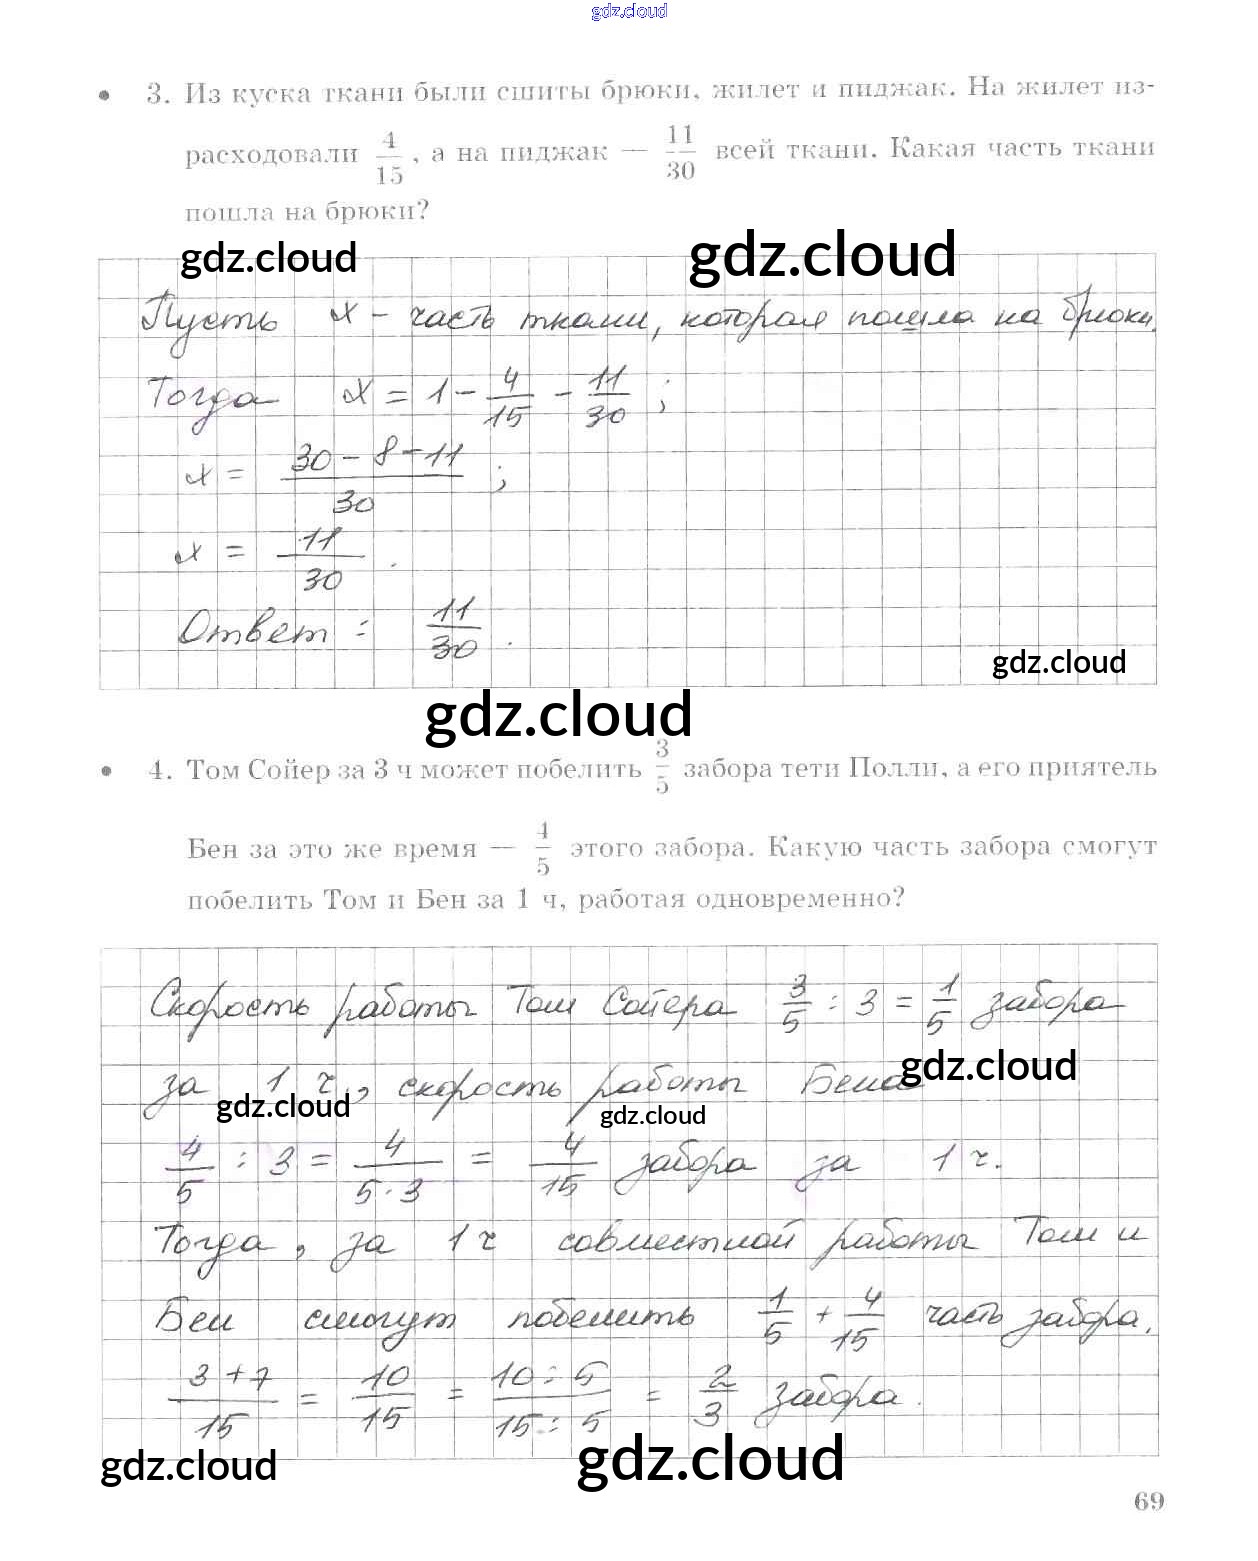 gdz.cloud
• 3. Из куска ткани были сшиты брюки, жилет и пиджак. На жилет из-
расходовали 4/15, а на пиджак — 11/30 всей ткани. Какая часть ткани
пошла на брюки?
gdz.cloud gdz.cloud
Пусть x - часть ткани, которая пошла на брюки.
Тогда x = 1 - 4/15 - 11/30 ;
x = (30 - 8 - 11)/30 ;
x = 11/30 .
Ответ: 11/30 .
gdz.cloud
gdz.cloud
• 4. Том Сойер за 3 ч может побелить 3/5 забора тети Полли, а его приятель
Бен за это же время — 4/5 этого забора. Какую часть забора смогут
побелить Том и Бен за 1 ч, работая одновременно?
Скорость работы Том Сойера 3/5 : 3 = 1/5 забора
за 1 ч., скорость работы Бена
gdz.cloud
gdz.cloud gdz.cloud
4/5 : 3 = 4/(5·3) = 4/15 забора за 1 ч.
Тогда, за 1 ч совместной работы Том и
Бен смогут побелить 1/5 + 4/15 часть забора.
(3+7)/15 = 10/15 = (10:5)/(15:5) = 2/3 забора.
gdz.cloud gdz.cloud
69